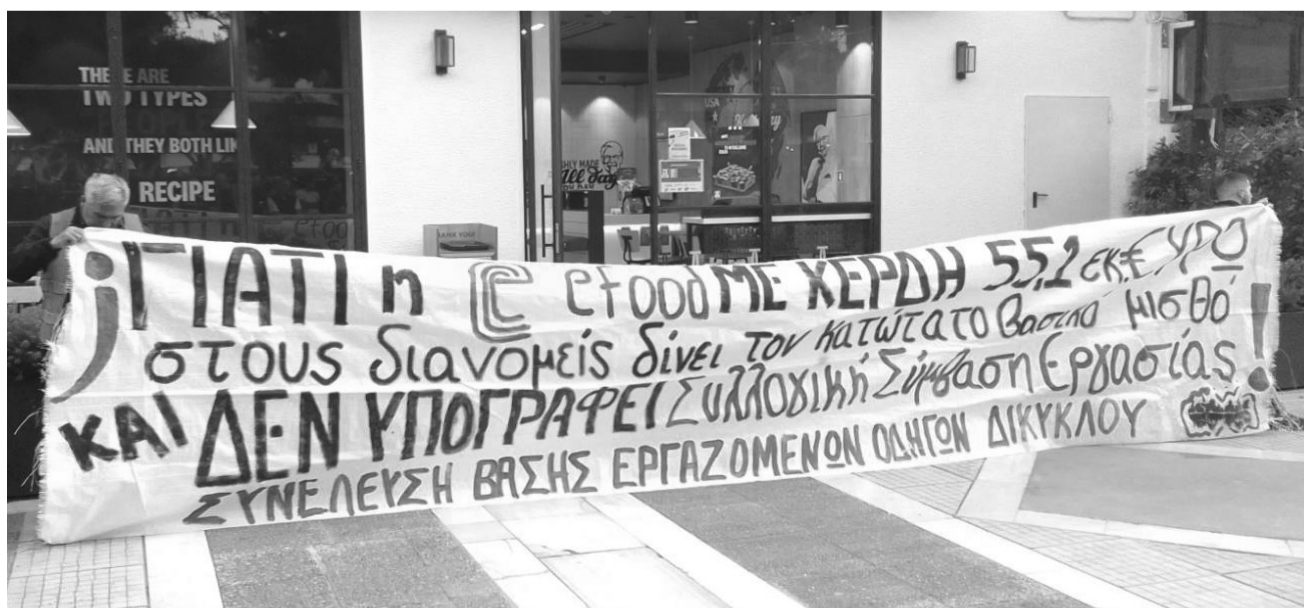 THERE ARE
TWO TYPES
PEOPLE
AND THEY BOTH LIK
RECIPE
USA
SHLY MADE
All day
¡ΓΙΑΤΙ η efood ΜΕ ΚΕΡΔΗ 55,2 εκ. €υρΩ
στους διανομείς δίνει τον κατώτατο βασικό μισθό
ΚΑΙ ΔΕΝ ΥΠΟΓΡΑΦΕΙ Συλλογική Σύμβαση Εργασίας!
ΣΥΝΕΛΕΥΣΗ ΒΑΣΗΣ ΕΡΓΑΖΟΜΕΝΩΝ ΟΔΗΓΩΝ ΔΙΚΥΚΛΟΥ